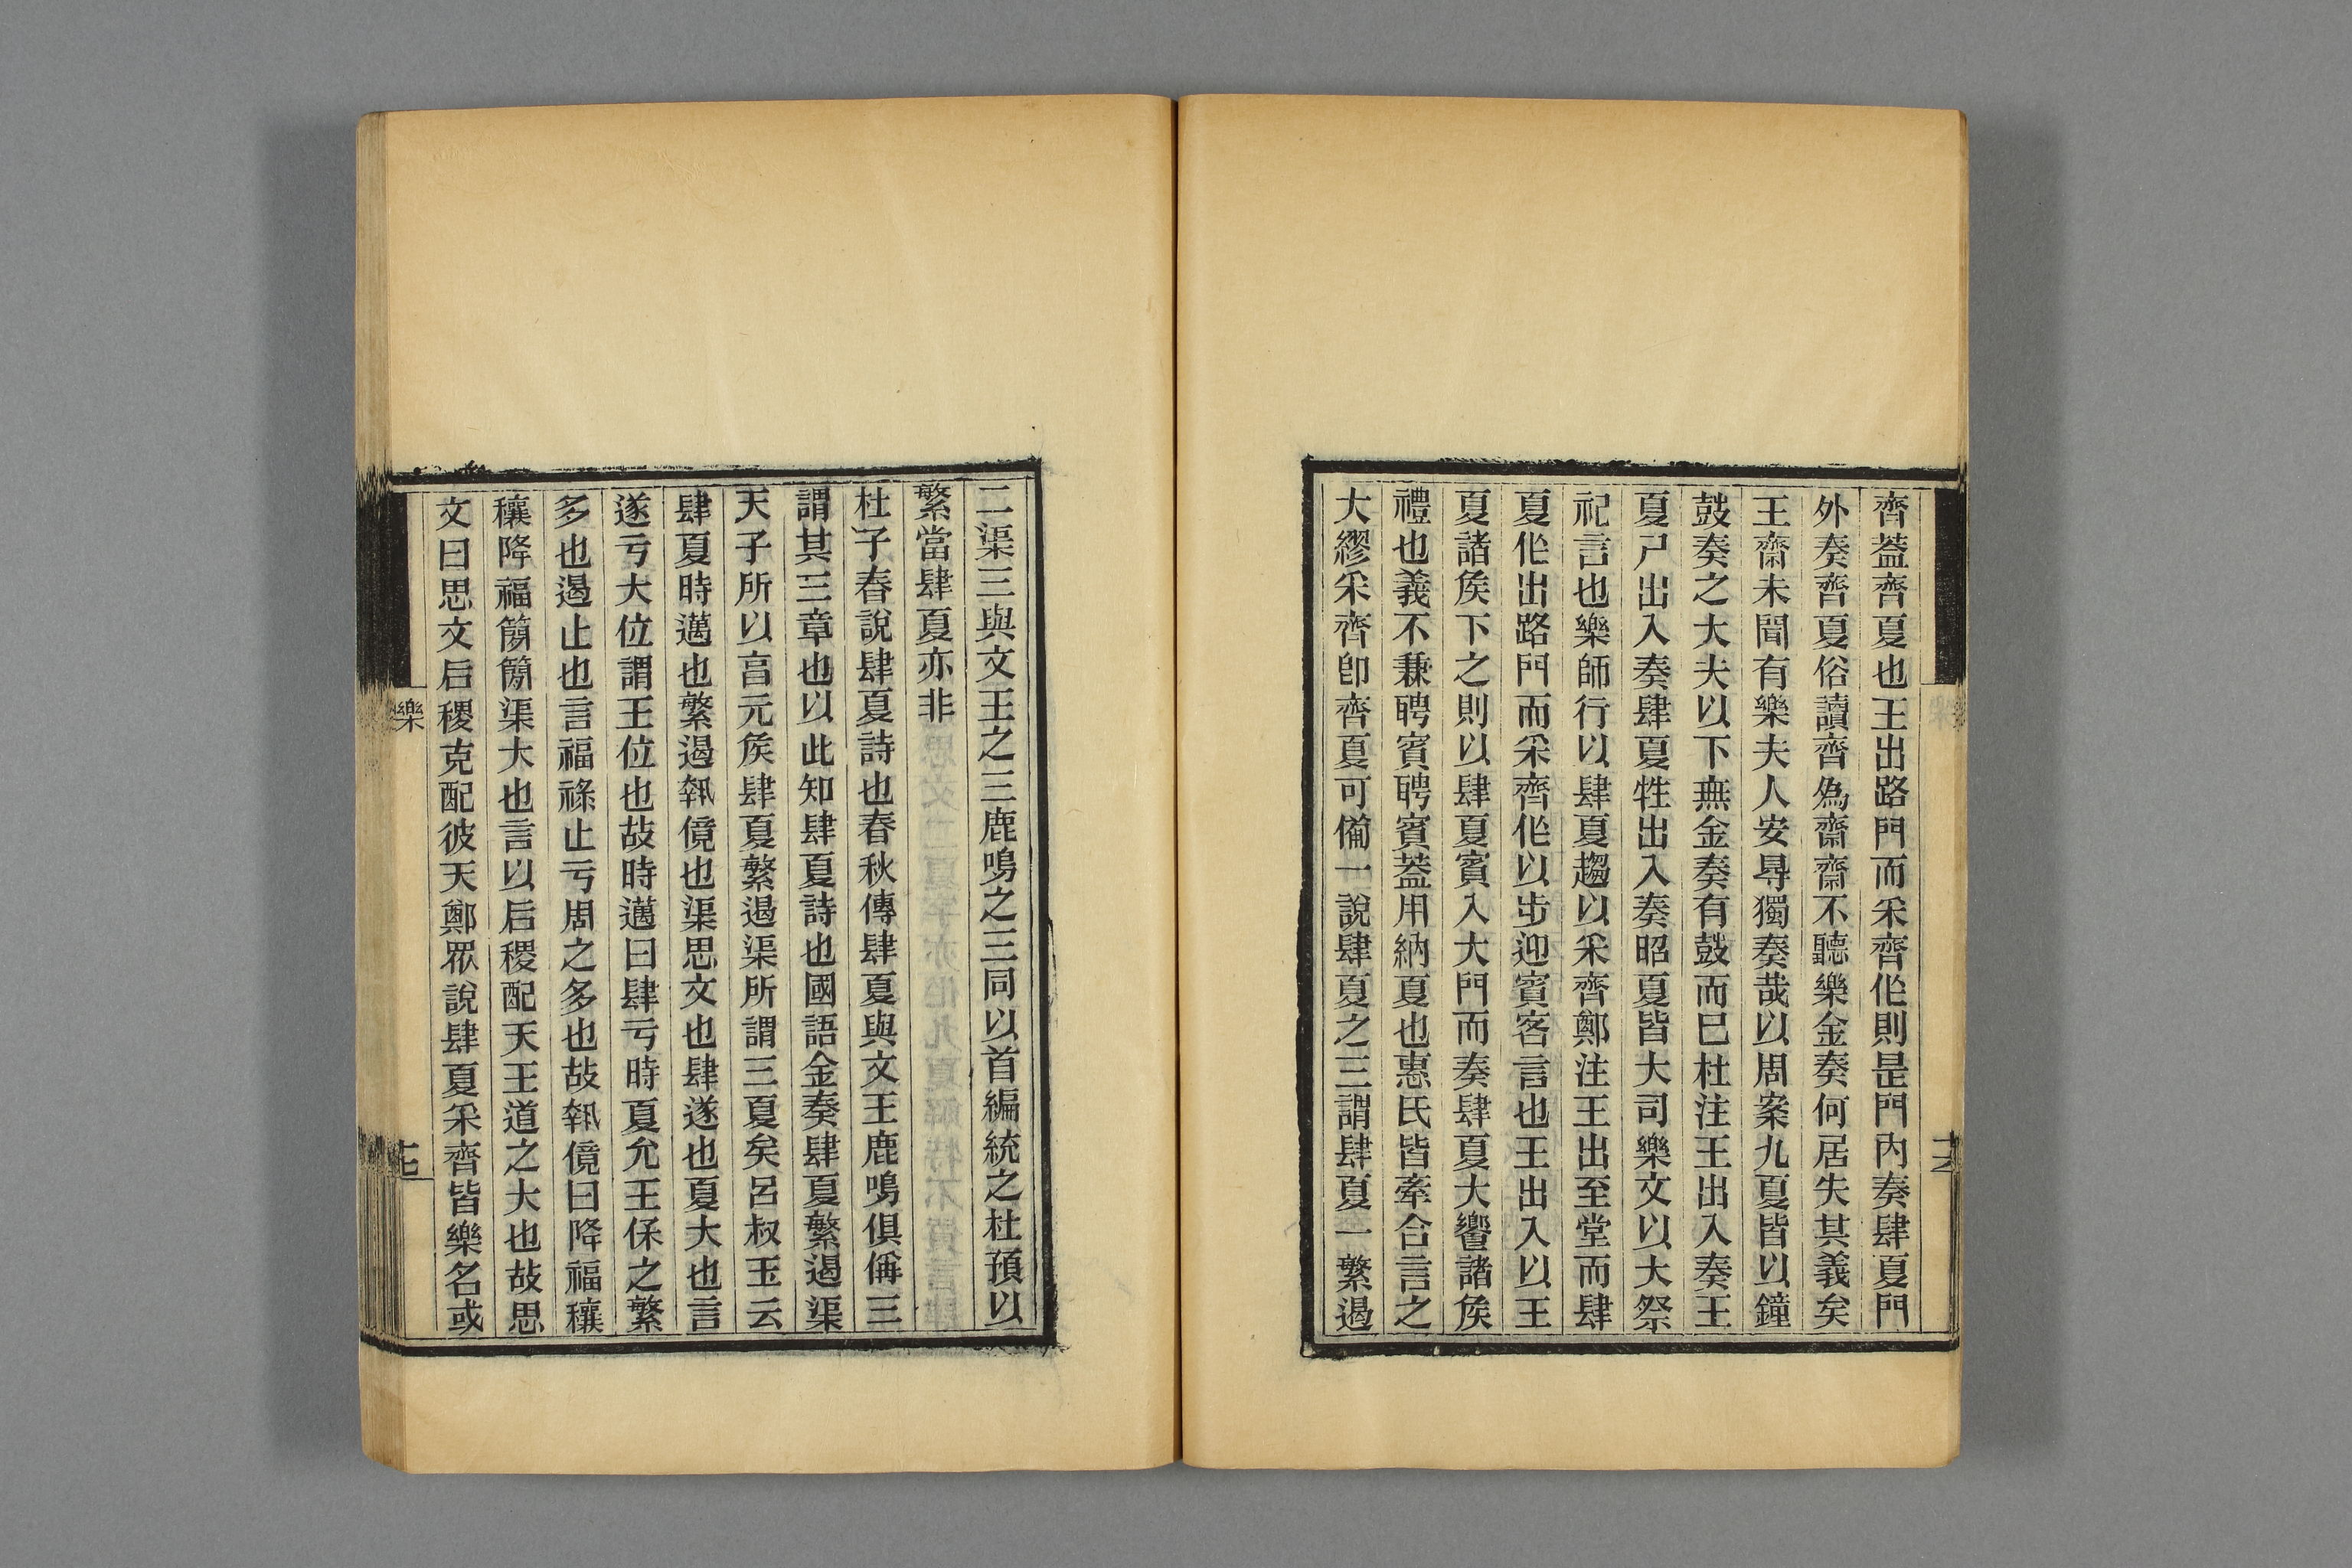 齊葢齊夏也王出路門而采齊作則是門內奏肆夏門
外奏齊夏俗讀齊為齋齋不聽樂金奏何居失其義矣
王齋未聞有樂夫人安㝵獨奏哉以周案九夏皆以鐘
鼓奏之大夫以下無金奏有鼓而已杜注王出入奏王
夏尸出入奏肆夏牲出入奏昭夏皆大司樂文以大祭
祀言也樂師行以肆夏趨以采齊鄭注王出至堂而肆
夏作出路門而采齊作以步迎賓客言也王出入以王
夏諸矦下之則以肆夏賓入大門而奏肆夏大饗諸矦
禮也義不兼聘賓聘賓葢用納夏也惠氏皆牽合言之
大繆采齊卽齊夏可僃一說肆夏之三謂肆夏一繁遏
二渠三與文王之三鹿鳴之三同以首編統之杜預以
繁當肆夏亦非
杜子春說肆夏詩也春秋傳肆夏與文王鹿鳴俱偁三
謂其三章也以此知肆夏詩也國語金奏肆夏繁遏渠
天子所以亯元矦肆夏繁遏渠所謂三夏矣呂叔玉云
肆夏時邁也繁遏執傹也渠思文也肆遂也夏大也言
遂亏大位謂王位也故時邁曰肆亏時夏允王保之繁
多也遏止也言福祿止亏周之多也故執傹曰降福穰
穰降福簡簡渠大也言以后稷配天王道之大也故思
文曰思文后稷克配彼天鄭眾說肆夏采齊皆樂名或
樂
十七
十六